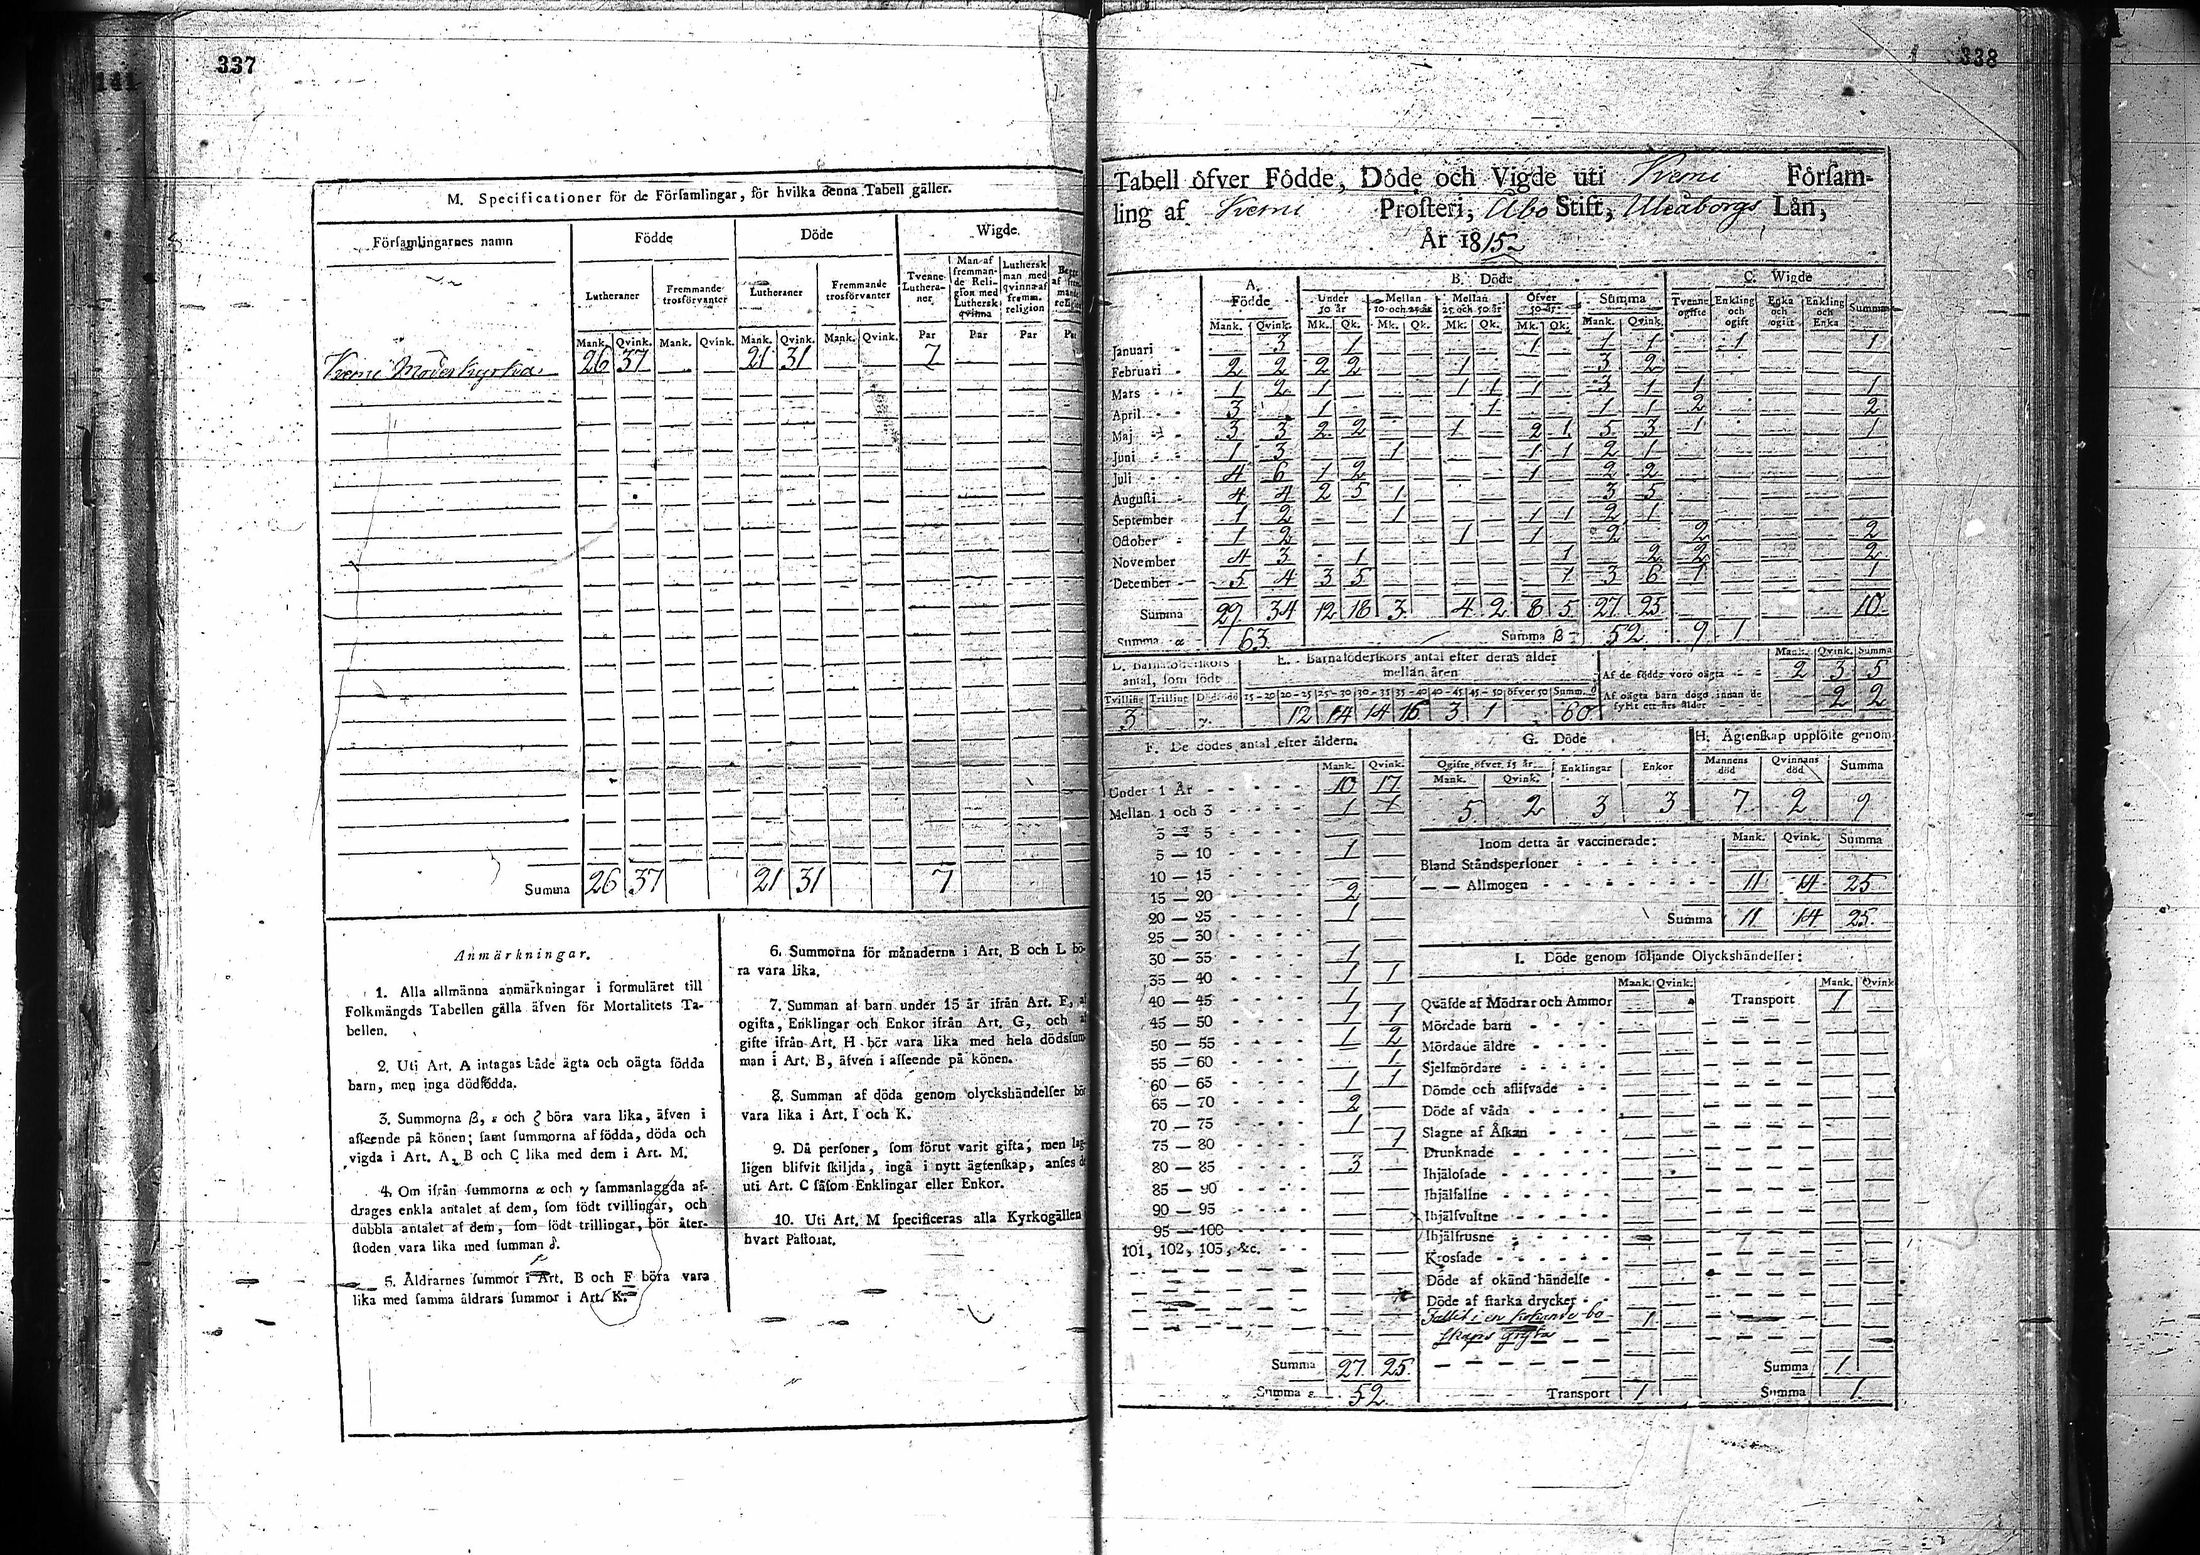 337
141
M. Specificationer för de Församlingar, för hvilka denna Tabell gäller.
Församlingarnes namn Födde Döde Wigde
Lutheraner Fremmande trosförvanter Lutheraner Fremmande trosförvanter Tvenne Lutheraner Man af fremmande Religion med Luthersk qvinna Luthersk man med qvinna af fremm. religion
Mank. Qvink. Mank. Qvink. Mank. Qvink. Mank. Qvink. Par Par Par Par
Kemi Moderkyrka 26 37 21 31 7
Summa 26 37 21 31 7
Anmärkningar.
1. Alla allmänna anmärkningar i formuläret till
Folkmängds Tabellen gälla äfven för Mortalitets Ta-
bellen.
2. Uti Art. A intagas både ägta och oägta födda
barn, men inga dödfödda.
3. Summorna β, ε och ζ böra vara lika, äfven i
afseende på könen; samt summorna af födda, döda och
vigda i Art. A, B och C lika med dem i Art. M.
4. Om ifrån summorna α och γ sammanlaggda af-
drages enkla antalet af dem, som födt tvillingar, och
dubbla antalet af dem, som födt trillingar, bör åter-
stoden vara lika med summan δ.
5. Åldrarnes summor i Art. B och F böra vara
lika med samma åldrars summor i Art. K.
6. Summorna för månaderna i Art. B och L bö-
ra vara lika.
7. Summan af barn under 15 år ifrån Art. F, af
ogifta, Enklingar och Enkor ifrån Art. G, och af
gifte ifrån Art. H bör vara lika med hela dödssum-
man i Art. B, äfven i afseende på könen.
8. Summan af döda genom olyckshändelser bör
vara lika i Art. I och K.
9. Då personer, som förut varit gifta, men lag-
ligen blifvit skiljda, ingå i nytt ägtenskap, anses de
uti Art. C såsom Enklingar eller Enkor.
10. Uti Art. M specificeras alla Kyrkogällen
hvart Pastorat.
338
Tabell öfver Födde, Döde och Vigde uti Kemi Församling
ling af Kemi Prosteri, Åbo Stift, Uleåborgs Län,
År 1815
A. Födde B. Döde C. Wigde
Under 10 år Mellan 10 och 25 år Mellan 25 och 50 år Öfver 50 år Summa Tvenne ogifte Enkling och ogift Enka och ogift Enkling och Enka Summa
Mank. Qvink. Mk. Qk. Mk. Qk. Mk. Qk. Mk. Qk. Mank. Qvink.
Januari 3 1 1 1 1 1 1
Februari 2 2 2 2 1 3 2
Mars 1 2 1 1 1 1 3 1 1 1
April 3 1 1 1 1 2 2
Maj 3 3 2 2 1 2 1 5 3 1 1
Juni 1 3 1 1 1 2 1
Juli 4 6 1 2 1 2 2
Augusti 4 4 2 5 1 3 5
September 1 2 1 1 1 2 1
October 1 2 1 1 2 2 2
November 4 3 1 1 2 2 2
December 5 4 3 5 1 3 6 1 1
Summa 29 34 12 18 3 4 2 8 5 27 25 10
Summa α 63 Summa β 52 9 1
D. Barnaföderskors antal, som födt
E. Barnaföderskors antal efter deras ålder mellan åren
Tvilling Trilling Dödfödd 15-20 20-25 25-30 30-35 35-40 40-45 45-50 öfver 50 Summ. δ
3 12 14 14 16 3 1 60
Mank. Qvink. Summa
Af de födde voro oägta 2 3 5
Af oägta barn dogo innan de fyllt ett års ålder 2 2
F. De dödes antal efter åldern.
Mank. Qvink.
Under 1 År 10 17
Mellan 1 och 3 1 1
3 — 5
5 — 10 1
10 — 15
15 — 20 2
20 — 25 1
25 — 30
30 — 35 1
35 — 40 1 1
40 — 45 1
45 — 50 1 1
50 — 55 1 2
55 — 60 1
60 — 65 1 1
65 — 70 2
70 — 75 1
75 — 80 1
80 — 85 3
85 — 90
90 — 95
95 — 100
101, 102, 103, &c.
Summa 27 25
Summa ε 52
G. Döde
Ogifte öfver 15 år Enklingar Enkor
Mank. Qvink.
5 2 3 3
H. Ägtenskap upplöste genom
Mannens död Qvinnans död Summa
7 2 9
Inom detta år vaccinerade: Mank. Qvink. Summa
Bland Ståndspersoner
— — Allmogen 11 14 25
Summa 11 14 25
I. Döde genom följande Olyckshändelser:
Mank. Qvink. Mank. Qvink
Qväfde af Mödrar och Ammor Transport 1
Mördade barn
Mördade äldre
Sjelfmördare
Dömde och aflifvade
Döde af våda
Slagne af Åskan
Drunknade
Ihjälosade
Ihjälfallne
Ihjälsvultne
Ihjälfrusne
Krossade
Döde af okänd händelse
Döde af starka drycker
Fallit i en kokande bo-
skaps gryta 1
Summa 1
Transport 1 Summa 1